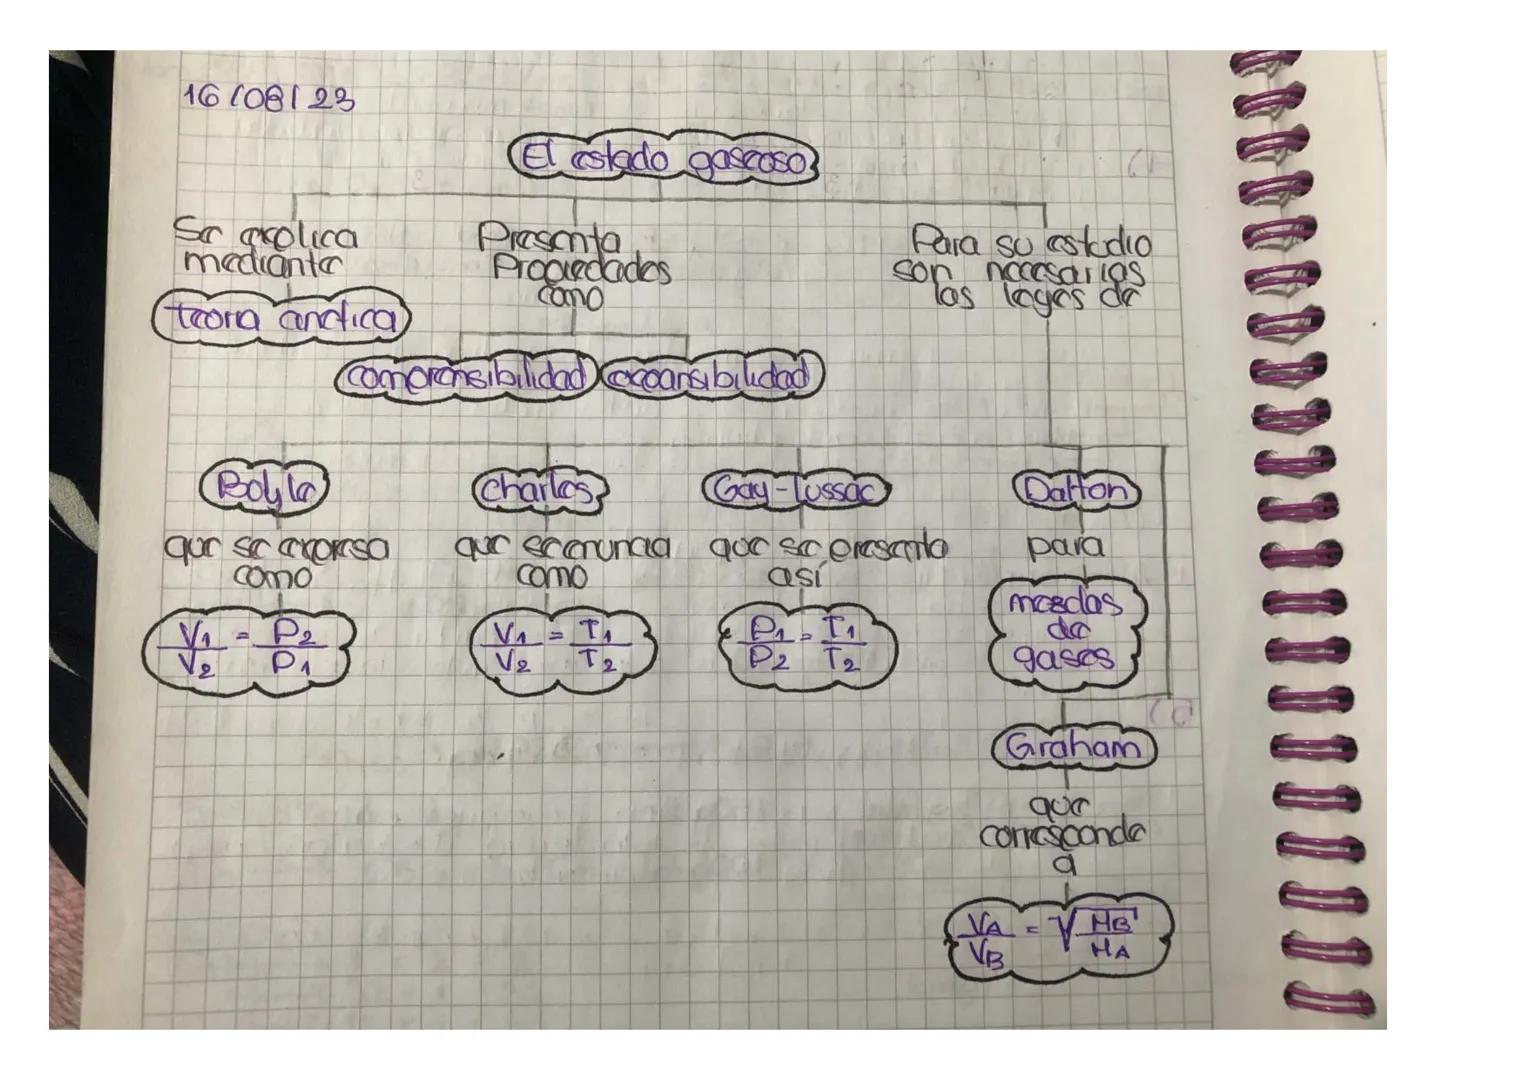 16/08/23
El estado gaseoso
Se explica
mediante
teoria cinetica
Presenta
Propiedades
como
comprensibilidad
expansibilidad
Para su estudio
son necesarias
las leyes de
Boyle
que se expresa
como
V1/V2 = P2/P1
Charles
que se enuncia
como
V1/V2 = T1/T2
Gay-lussac
que se presenta
así
P1/P2 = T1/T2
Dalton
para
mezclas
de
gases
Graham
que
corresponde
a
VA/VB = √MB/MA